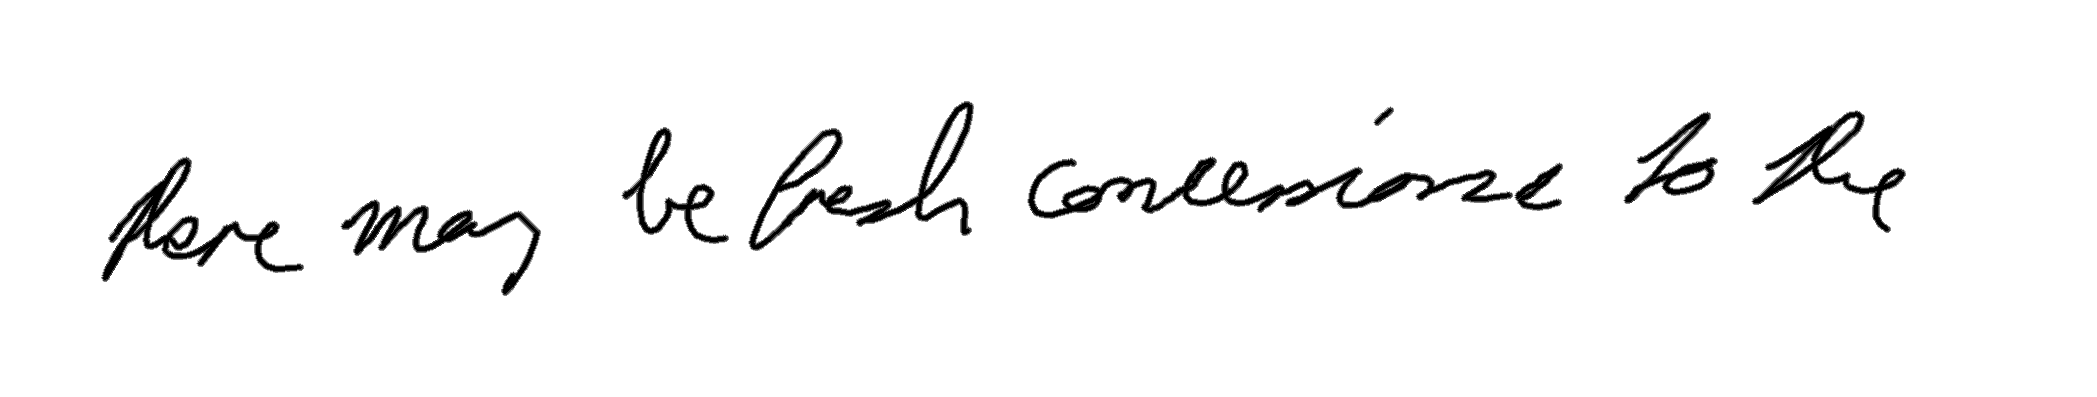 there may be fresh concessions to the